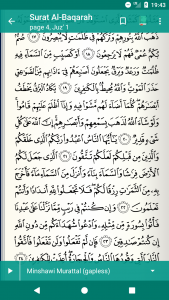 19:43
Surat Al-Baqarah
page 4, Juz' 1
ذَهَبَ ٱللَّهُ بِنُورِهِمْ وَتَرَكَهُمْ فِى ظُلُمَٰتٍ لَّا يُبْصِرُونَ ١٧ صُمٌّۢ
بُكْمٌ عُمْىٌ فَهُمْ لَا يَرْجِعُونَ ١٨ أَوْ كَصَيِّبٍ مِّنَ ٱلسَّمَآءِ فِيهِ
ظُلُمَٰتٌ وَرَعْدٌ وَبَرْقٌ يَجْعَلُونَ أَصَٰبِعَهُمْ فِىٓ ءَاذَانِهِم مِّنَ ٱلصَّوَٰعِقِ
حَذَرَ ٱلْمَوْتِ وَٱللَّهُ مُحِيطٌۢ بِٱلْكَٰفِرِينَ ١٩ يَكَادُ ٱلْبَرْقُ يَخْطَفُ
أَبْصَٰرَهُمْ كُلَّمَآ أَضَآءَ لَهُم مَّشَوْا۟ فِيهِ وَإِذَآ أَظْلَمَ عَلَيْهِمْ قَامُوا۟
وَلَوْ شَآءَ ٱللَّهُ لَذَهَبَ بِسَمْعِهِمْ وَأَبْصَٰرِهِمْ إِنَّ ٱللَّهَ عَلَىٰ كُلِّ
شَىْءٍ قَدِيرٌ ٢٠ يَٰٓأَيُّهَا ٱلنَّاسُ ٱعْبُدُوا۟ رَبَّكُمُ ٱلَّذِى خَلَقَكُمْ
وَٱلَّذِينَ مِن قَبْلِكُمْ لَعَلَّكُمْ تَتَّقُونَ ٢١ ٱلَّذِى جَعَلَ لَكُمُ
ٱلْأَرْضَ فِرَٰشًا وَٱلسَّمَآءَ بِنَآءً وَأَنزَلَ مِنَ ٱلسَّمَآءِ مَآءً فَأَخْرَجَ بِهِۦ
مِنَ ٱلثَّمَرَٰتِ رِزْقًا لَّكُمْ فَلَا تَجْعَلُوا۟ لِلَّهِ أَندَادًا وَأَنتُمْ
تَعْلَمُونَ ٢٢ وَإِن كُنتُمْ فِى رَيْبٍ مِّمَّا نَزَّلْنَا عَلَىٰ عَبْدِنَا
فَأْتُوا۟ بِسُورَةٍ مِّن مِّثْلِهِۦ وَٱدْعُوا۟ شُهَدَآءَكُم مِّن دُونِ ٱللَّهِ
إِن كُنتُمْ صَٰدِقِينَ ٢٣ فَإِن لَّمْ تَفْعَلُوا۟ وَلَن تَفْعَلُوا۟ فَٱتَّقُوا۟
Minshawi Murattal (gapless)